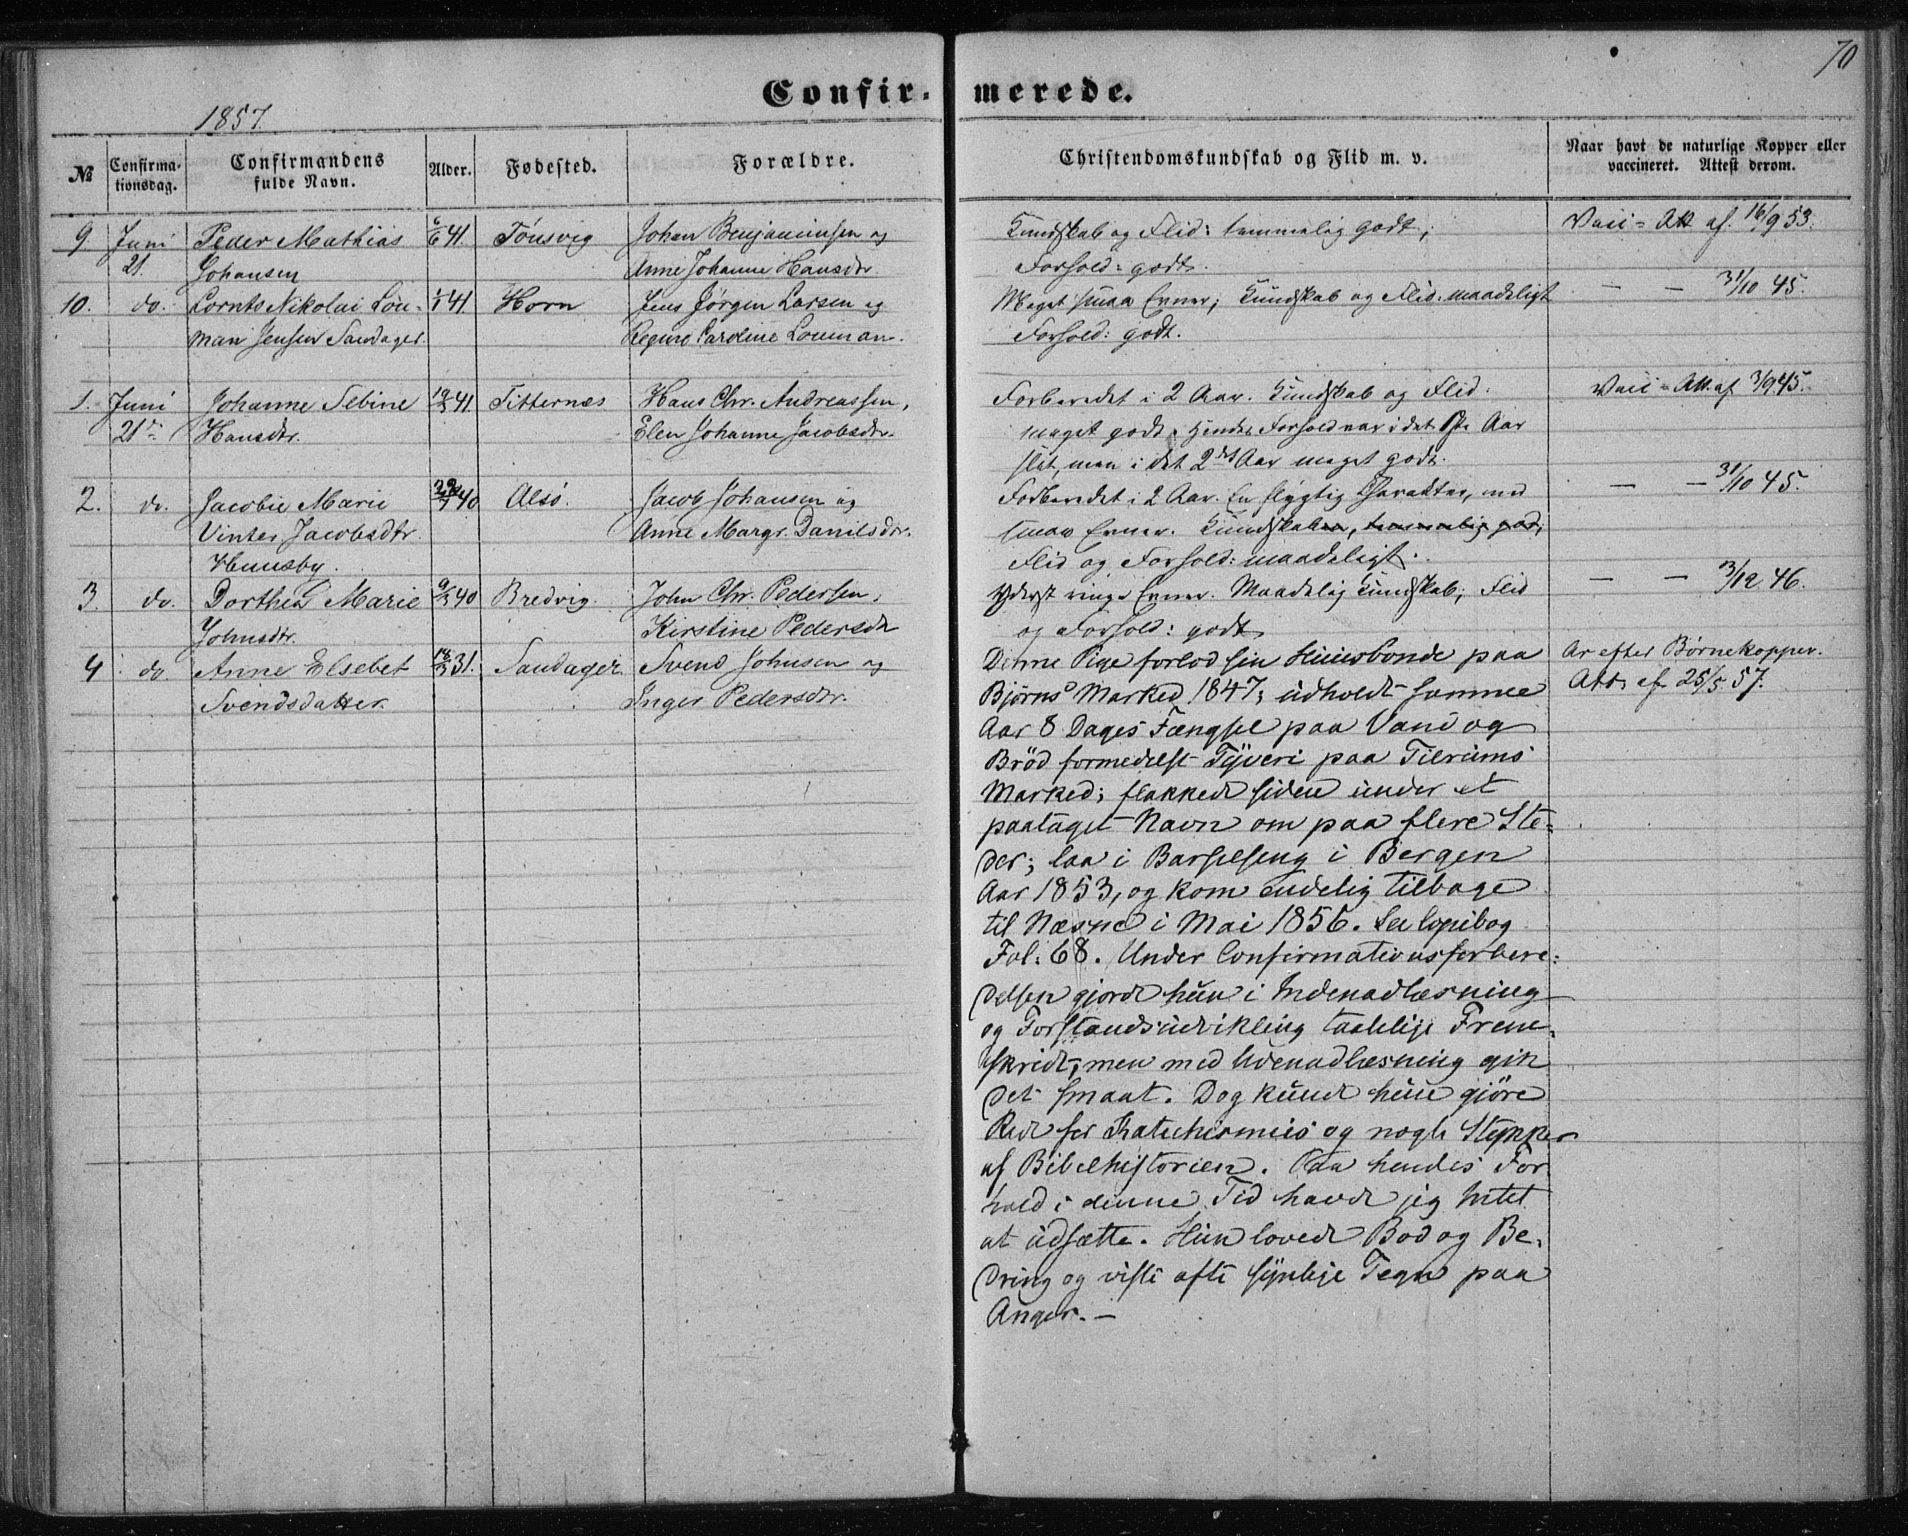 70
Confirmerede.
1857.
№ Confirmationsdag. Confirmandens fulde Navn. Alder. Fødested. Forældre. Christendomskundskab og Flid m. v. Naar havt de naturlige Kopper eller vaccineret. Attest derom.
9. Juni Peder Mathias 6/6 41. Tönsvig Johan Benjaminsen og Kundskab og Flid: temmelig godt; Vacc = Att af. 16/9 53.
21. Johansen Anne Johanne Hansdtr. Forhold: godt.
10. do. Lornts Nikolai Lou- 1/1 41. Horn Jens Jørgen Larsen og Meget smaa Evner; Kundskab og Flid: maadeligt — — 31/10 45.
man Jensen Sandager. Regine Caroline Louman. Forhold: godt.
1. Juni Johanne Sebine 19/3 41. Titternæs Hans Chr. Andreassen, Forberedet i 2 Aar. Kundskab og Flid: Vacc = Att. af 3/9 45.
21de Hansdtr. Elen Johanne Jacobsdtr. meget godt. Hendes Forhold var i det 1ste Aar
slet, men i det 2det Aar meget godt.
2. do. Jacobie Marie 29/7 40 Alsö. Jacob Johansen og Forberedet i 2 Aar. En flygtig Charakter, med — — 31/10 45.
Vinter Jacobsdtr. Anne Margr. Danilsdtr. smaa Evner. Kundskaben, temmelig god;
Hunsby. Flid og Forhold: maadeligt.
3. do. Dorthea Marie 9/3 40 Bredvig. John Chr. Pedersen, Yderst ringe Evner. Maadelig Kundskab; Flid — — 3/12 46.
Johnsdtr. Kirstine Pedersdtr og Forhold: godt
4. do. Anne Elsebet 18/3 31. Sandager. Svend Johnsen og Denne Pige forlod sin Huusbonde paa Ar efter Børnekopper.
Svendsdatter. Inger Pedersdtr. Bjørns Marked 1847; udholdt samme Att. af 25/5 57.
Aar 8 Dages Fængsel paa Vand og
Bröd formedelst Tyveri paa Tilrums
Marked; flakkede siden under et
paataget Navn om paa flere Ste-
der; laa i Barselseng i Bergen
Aar 1853, og kom endelig tilbage
til Næsne i Mai 1856. See Copibog
Fol: 68. Under Confirmationsforbere-
delsen gjorde hun i Indenadlæsning
og Forstandsudvikling taalelige Frem-
skridt, men med Udenadlæsning gik
det smaat. Dog kunde hun gjöre
Rede for Katechismus og nogle Stykker
af Bibelhistorien. Paa hendes For
hold i denne Tid havde jeg Intet
at udsætte. Hun lovede Bod og Be-
dring og viste ofte synlige Tegn paa
Anger. —